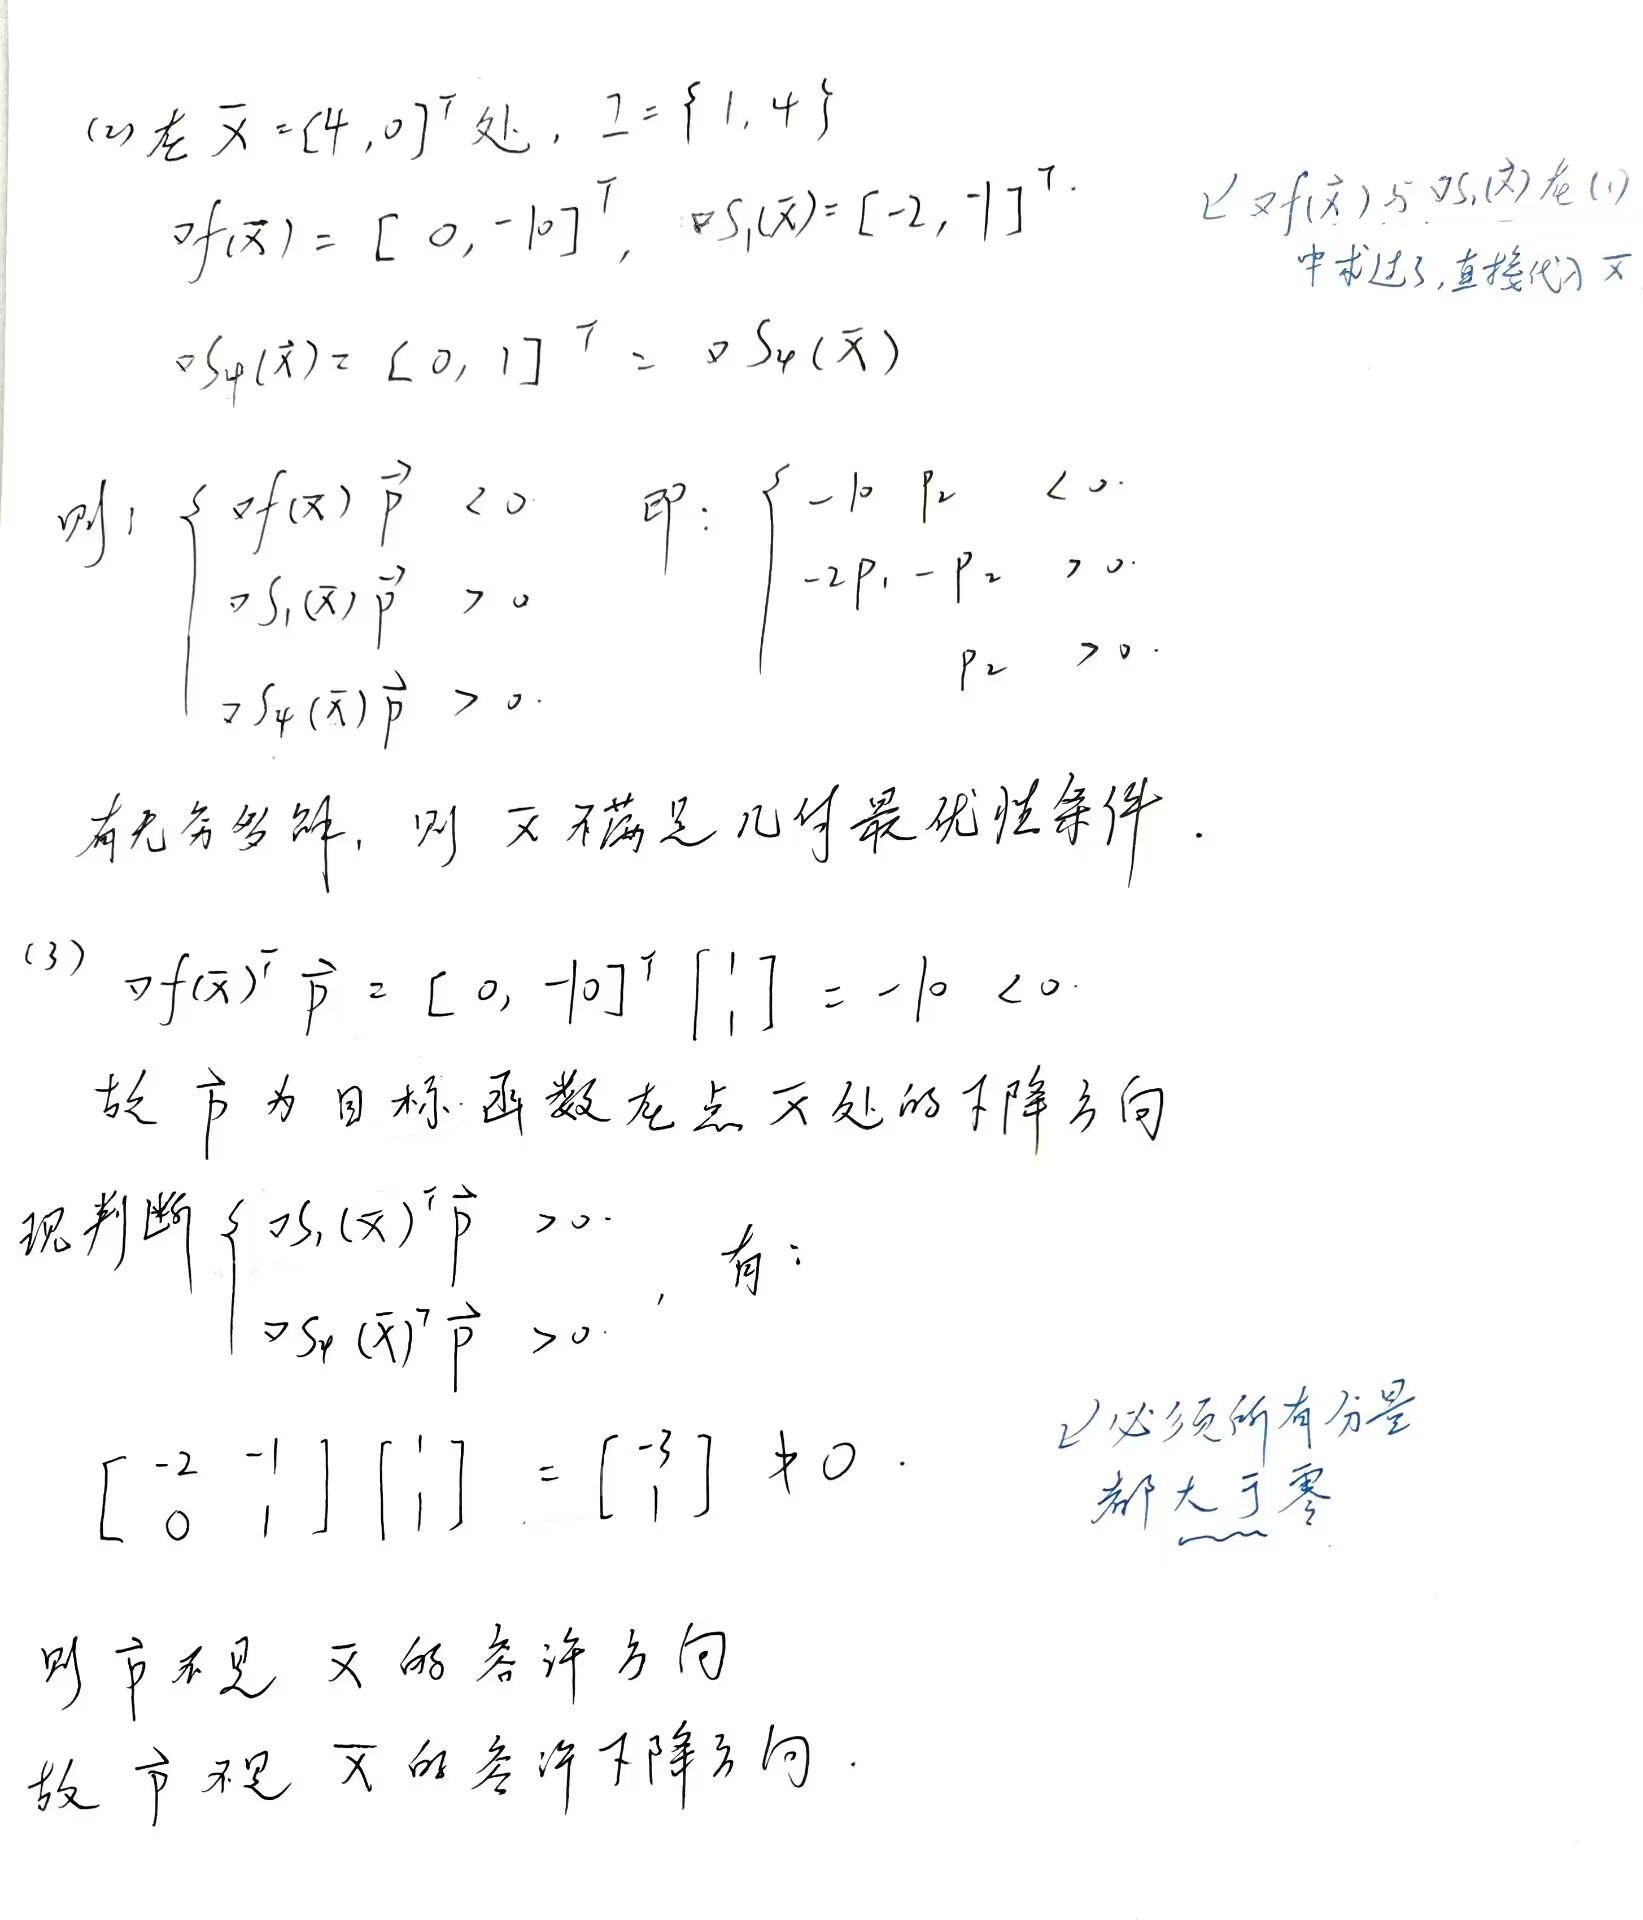 (2) 在 x̄ = [4, 0]ᵀ 处, I = {1, 4}
∇f(x̄) = [0, -10]ᵀ, ∇S₁(x̄) = [-2, -1]ᵀ.
↙ ∇f(x⃗) 与 ∇S₁(x⃗) 在 (1)
中求过了, 直接代入 x̄
∇S₄(x⃗) = [0, 1]ᵀ = ∇S₄(x̄)
则: { ∇f(x̄) p⃗ < 0. 即: { -10 p₂ < 0.
∇S₁(x̄) p⃗ > 0 -2p₁ - p₂ > 0.
∇S₄(x̄) p⃗ > 0. p₂ > 0.
有无穷多解, 则 x̄ 不满足几何最优性条件.
(3) ∇f(x̄)ᵀ p⃗ = [0, -10]ᵀ [1 1] = -10 < 0.
故 p⃗ 为目标函数在点 x̄ 处的下降方向
现判断 { ∇S₁(x̄)ᵀ p⃗ > 0.
∇S₄(x̄)ᵀ p⃗ > 0. , 有:
[-2 -1; 0 1] [1; 1] = [-3; 1] ≯ 0.
↙ 必须所有分量
都大于零
则 p⃗ 不是 x̄ 的容许方向
故 p⃗ 不是 x̄ 的容许下降方向.